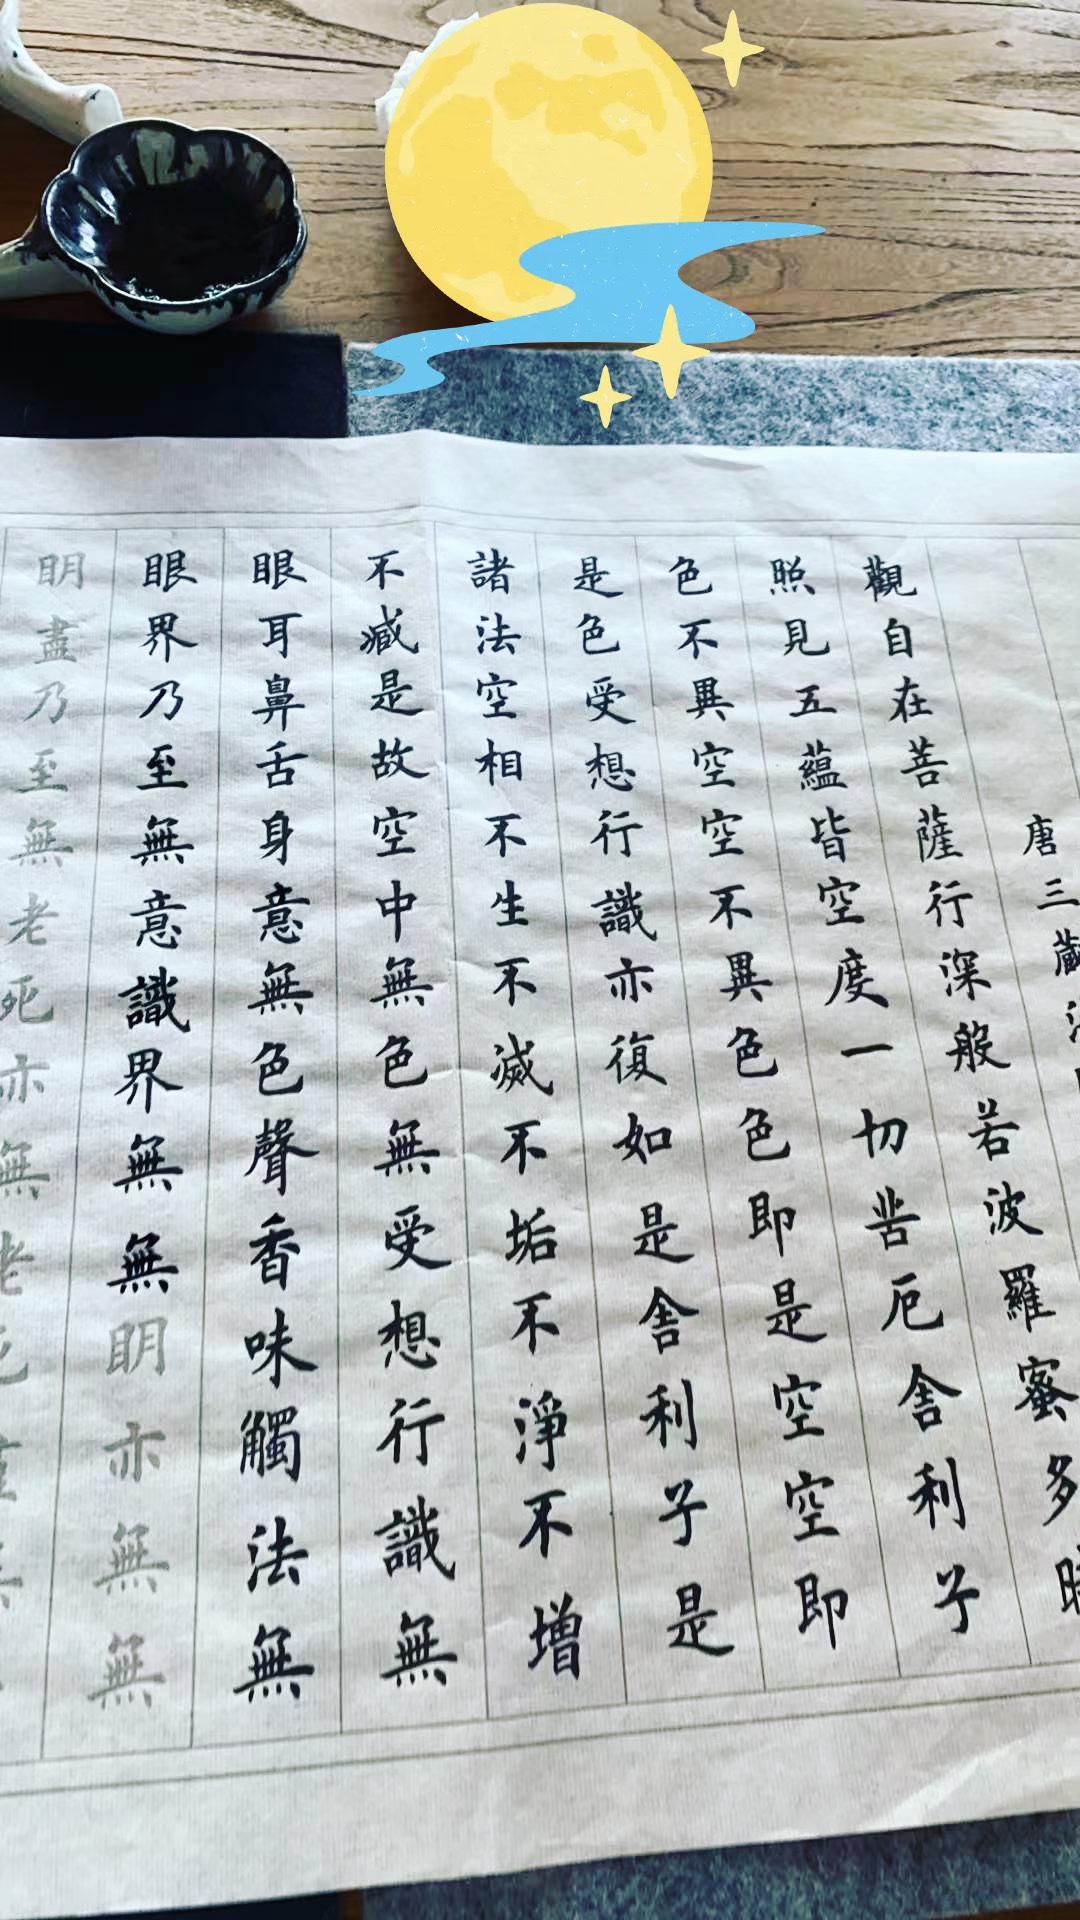 唐三藏法
觀自在菩薩行深般若波羅蜜多時
照見五蘊皆空度一切苦厄舍利子
色不異空空不異色色即是空空即
是色受想行識亦復如是舍利子是
諸法空相不生不滅不垢不淨不增
不減是故空中無色無受想行識無
眼耳鼻舌身意無色聲香味觸法無
眼界乃至無意識界無無明亦無無
明盡乃至無老死亦無老死